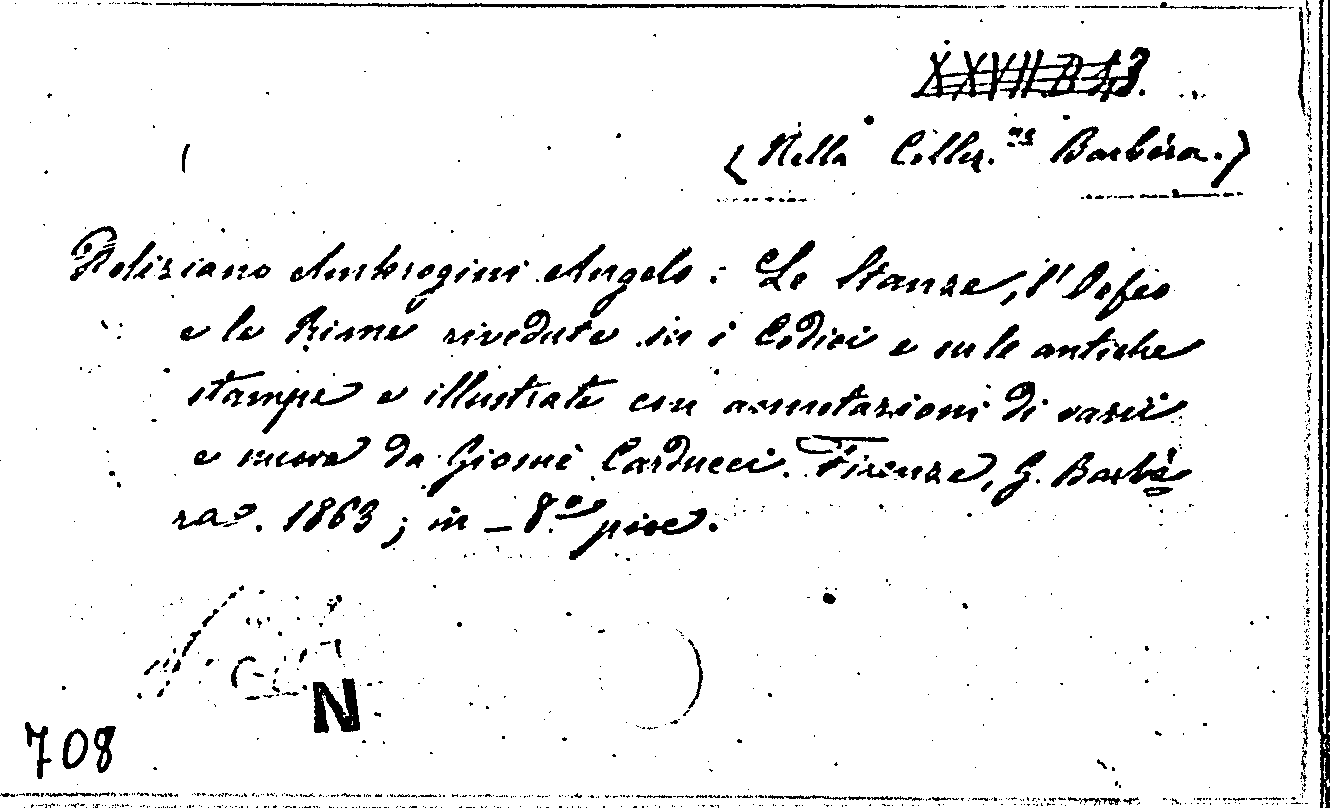 XXVII.B 13.
(Nella Collez.ne Barbèra.)
Poliziano Ambrogini Angelo: Le Stanze, l'Orfeo
e le Rime rivedute su i Codici e su le antiche
stampe e illustrate con annotazioni di varii
e nuove da Giosuè Carducci. Firenze, G. Barbè
ra. 1863; in-8.° picc.
N
708